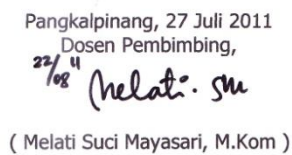 Pangkalpinang, 27 Juli 2011
Dosen Pembimbing,
22/08 11
Melati. sm
( Melati Suci Mayasari, M.Kom )